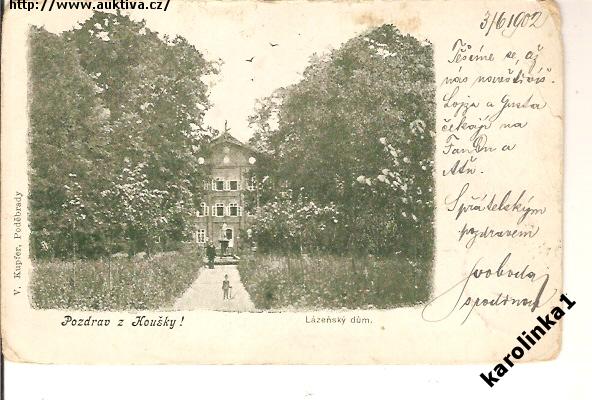 http://www.auktiva.cz/
3/6 1902
Těšíme se, až
nás navštívíš.
Lojza a Gusta
čekají na
a
Přátelským
pozdravem
Svoboda
s rodinou
V. Kupfer, Poděbrady
Pozdrav z Houšky!
Lázeňský dům.
karolinka1